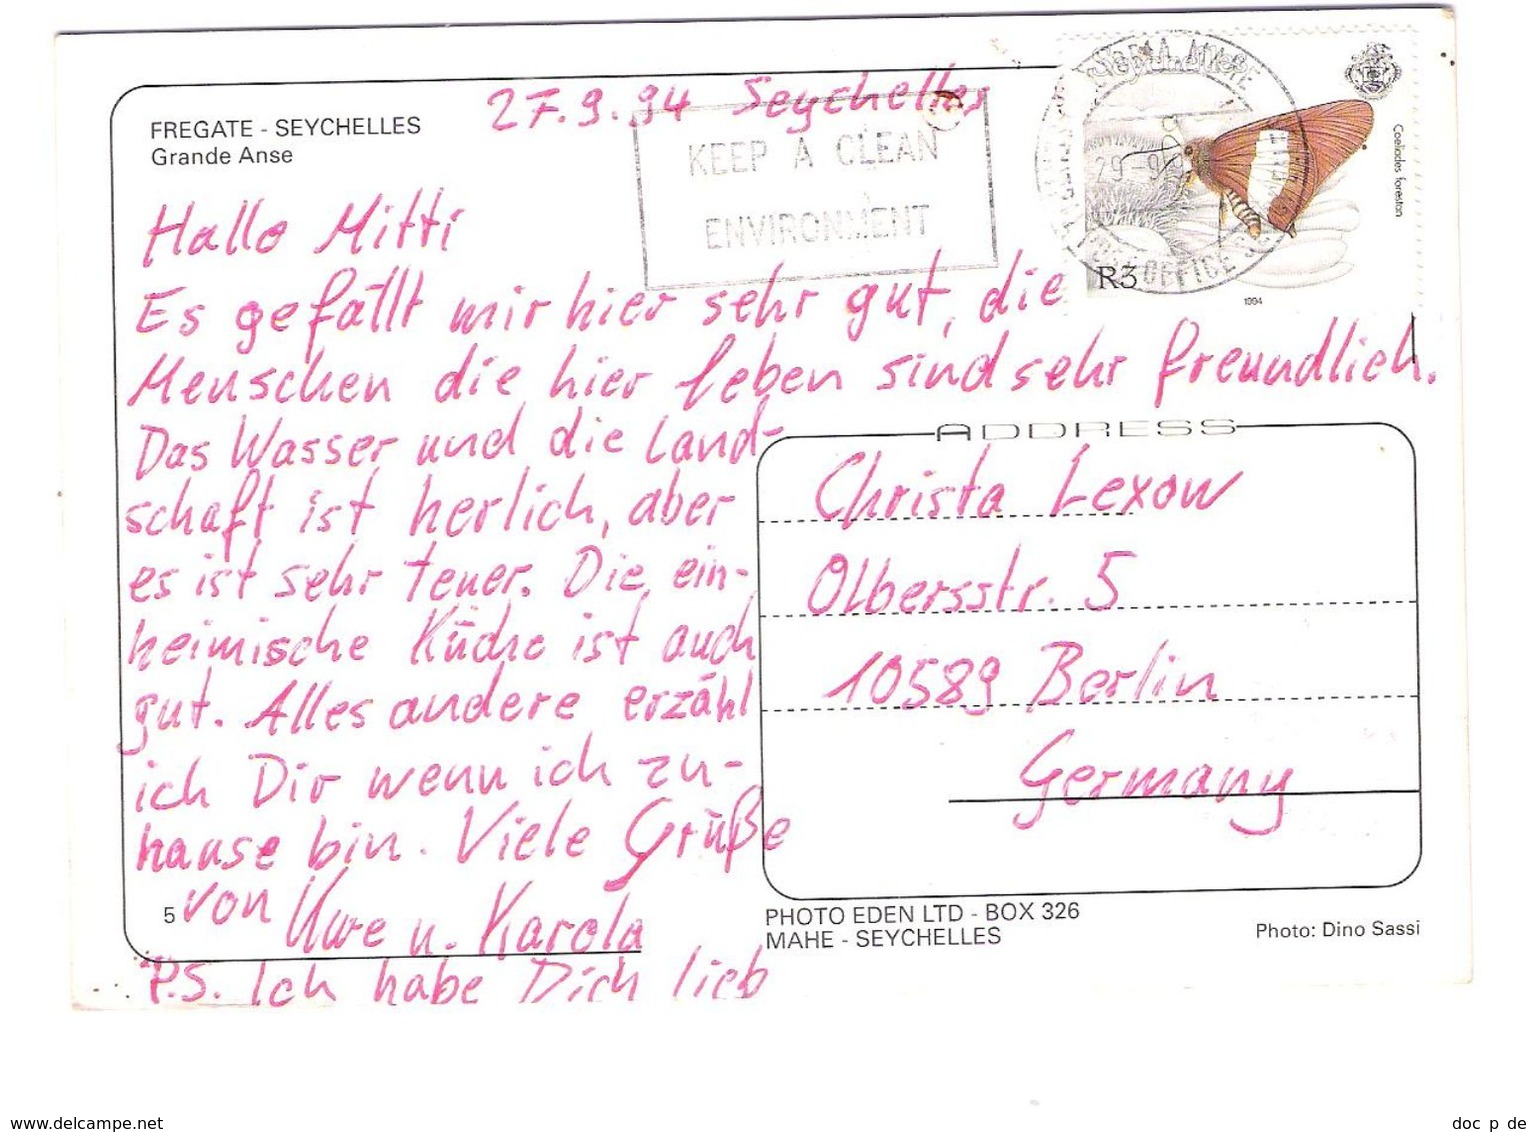 FREGATE - SEYCHELLES
Grande Anse
27.9.94 Seychelles
KEEP A CLEAN
ENVIRONMENT
29-9
POST OFFICE
R3
1994
Coeliades forestan
Hallo Mitti
Es gefällt mir hier sehr gut, die
Menschen die hier leben sind sehr freundlich.
Das Wasser und die Land-
schaft ist herlich, aber
es ist sehr teuer. Die ein-
heimische Küche ist auch
gut. Alles andere erzähl
ich Dir wenn ich zu-
hause bin. Viele Grüße
von Uwe u. Karola
P.S. Ich habe Dich lieb
5
ADDRESS
Christa Lexow
Olbersstr. 5
10589 Berlin
Germany
PHOTO EDEN LTD - BOX 326
MAHE - SEYCHELLES
Photo: Dino Sassi
www.delcampe.net
doc_p_de